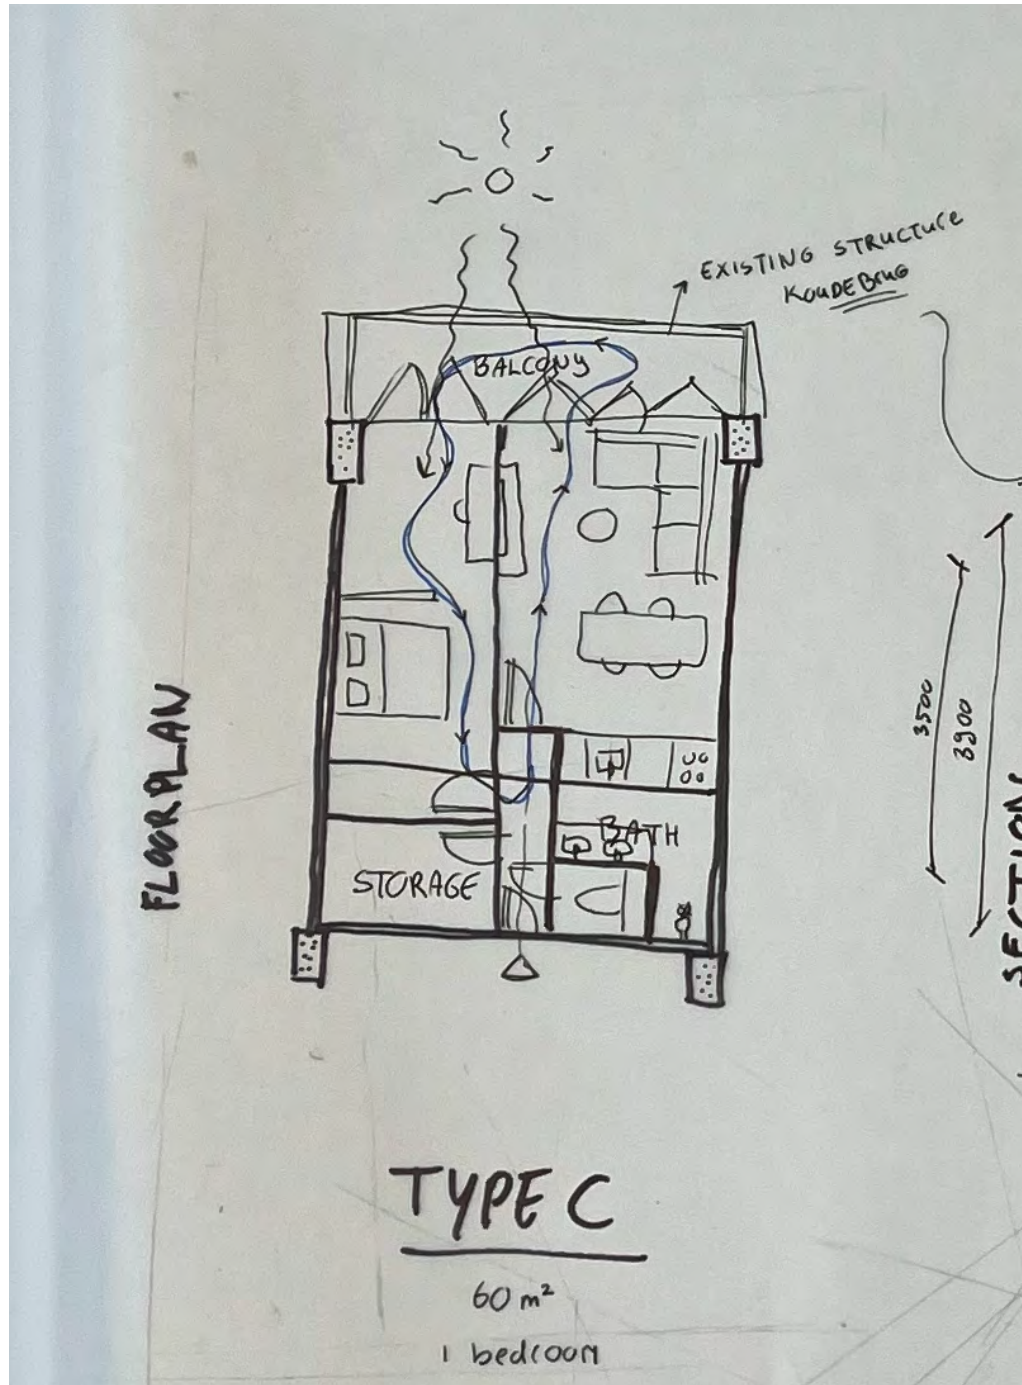 EXISTING STRUCTURE
KOUDEBRUG
BALCONY
FLOORPLAN
3500
3900
BATH
STORAGE
SECTION
TYPE C
60 m²
1 bedroom